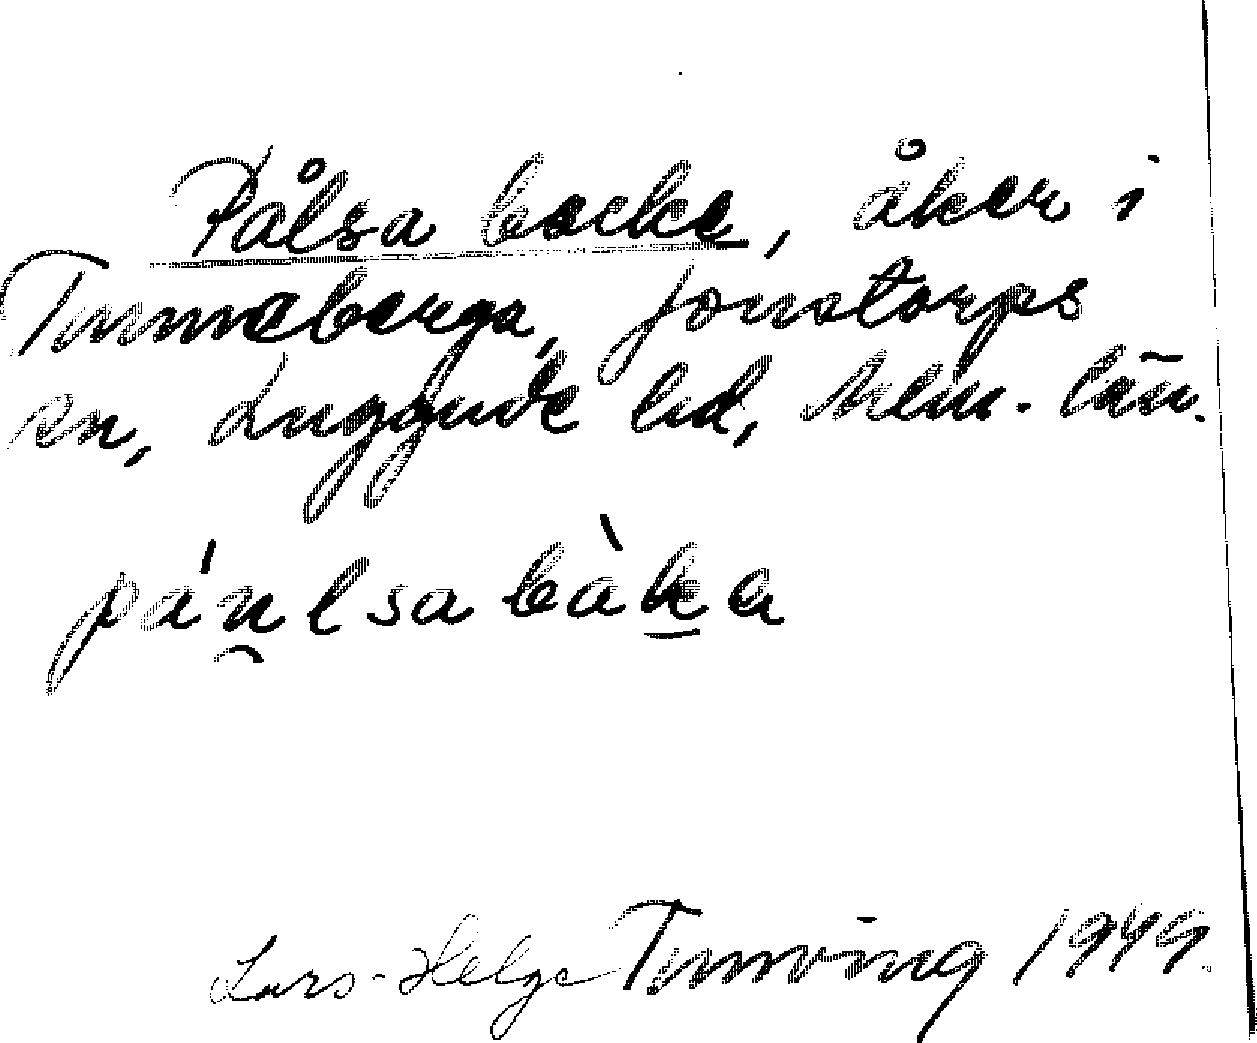 Pålsa backe, åker i
Tunneberga, Jonstorps
sn, Luggude hd, Mlm. län.
páu̯lsabàka
Lars-Helge Tunving 1949.